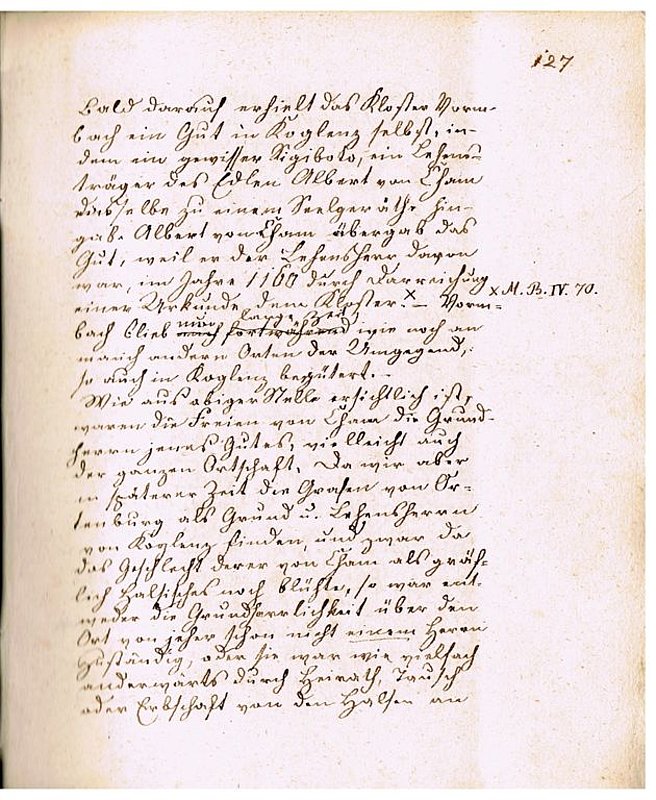 127
Bald darauf erhielt das Kloster Vorm-
bach ein Gut in Koglenz selbst, in-
dem ein gewisser Sigiboto, ein Lehens-
träger des Edlen Albert von Cham
dasselbe zu einem Seelgeräthe hin-
gab. Albert von Cham übergab das
Gut, weil er der Lehensherr davon
war, im Jahre 1160 durch Darreichung
einer Urkunde dem Kloster. x – Vorm-
x M. B. IV. 70.
bach blieb nun lange Zeit, wie noch an
manch andern Orten der Umgegend,
so auch in Koglenz begütert. –
Wie aus obiger Stelle ersichtlich ist,
waren die Freien von Cham die Grund-
herrn jenes Gutes, vielleicht auch
der ganzen Ortschaft. Da wir aber
in späterer Zeit die Grafen von Or-
tenburg als Grund u. Lehensherrn
von Koglenz finden, und zwar da
das Geschlecht derer von Cham als gräf-
lich Halsisches noch blühte, so war ent-
weder die Grundherrlichkeit über den
Ort von jeher schon nicht einem Herrn
zuständig, oder sie war wie vielfach
anderwärts durch Heirath, Tausch
oder Erbschaft von den Halsen an